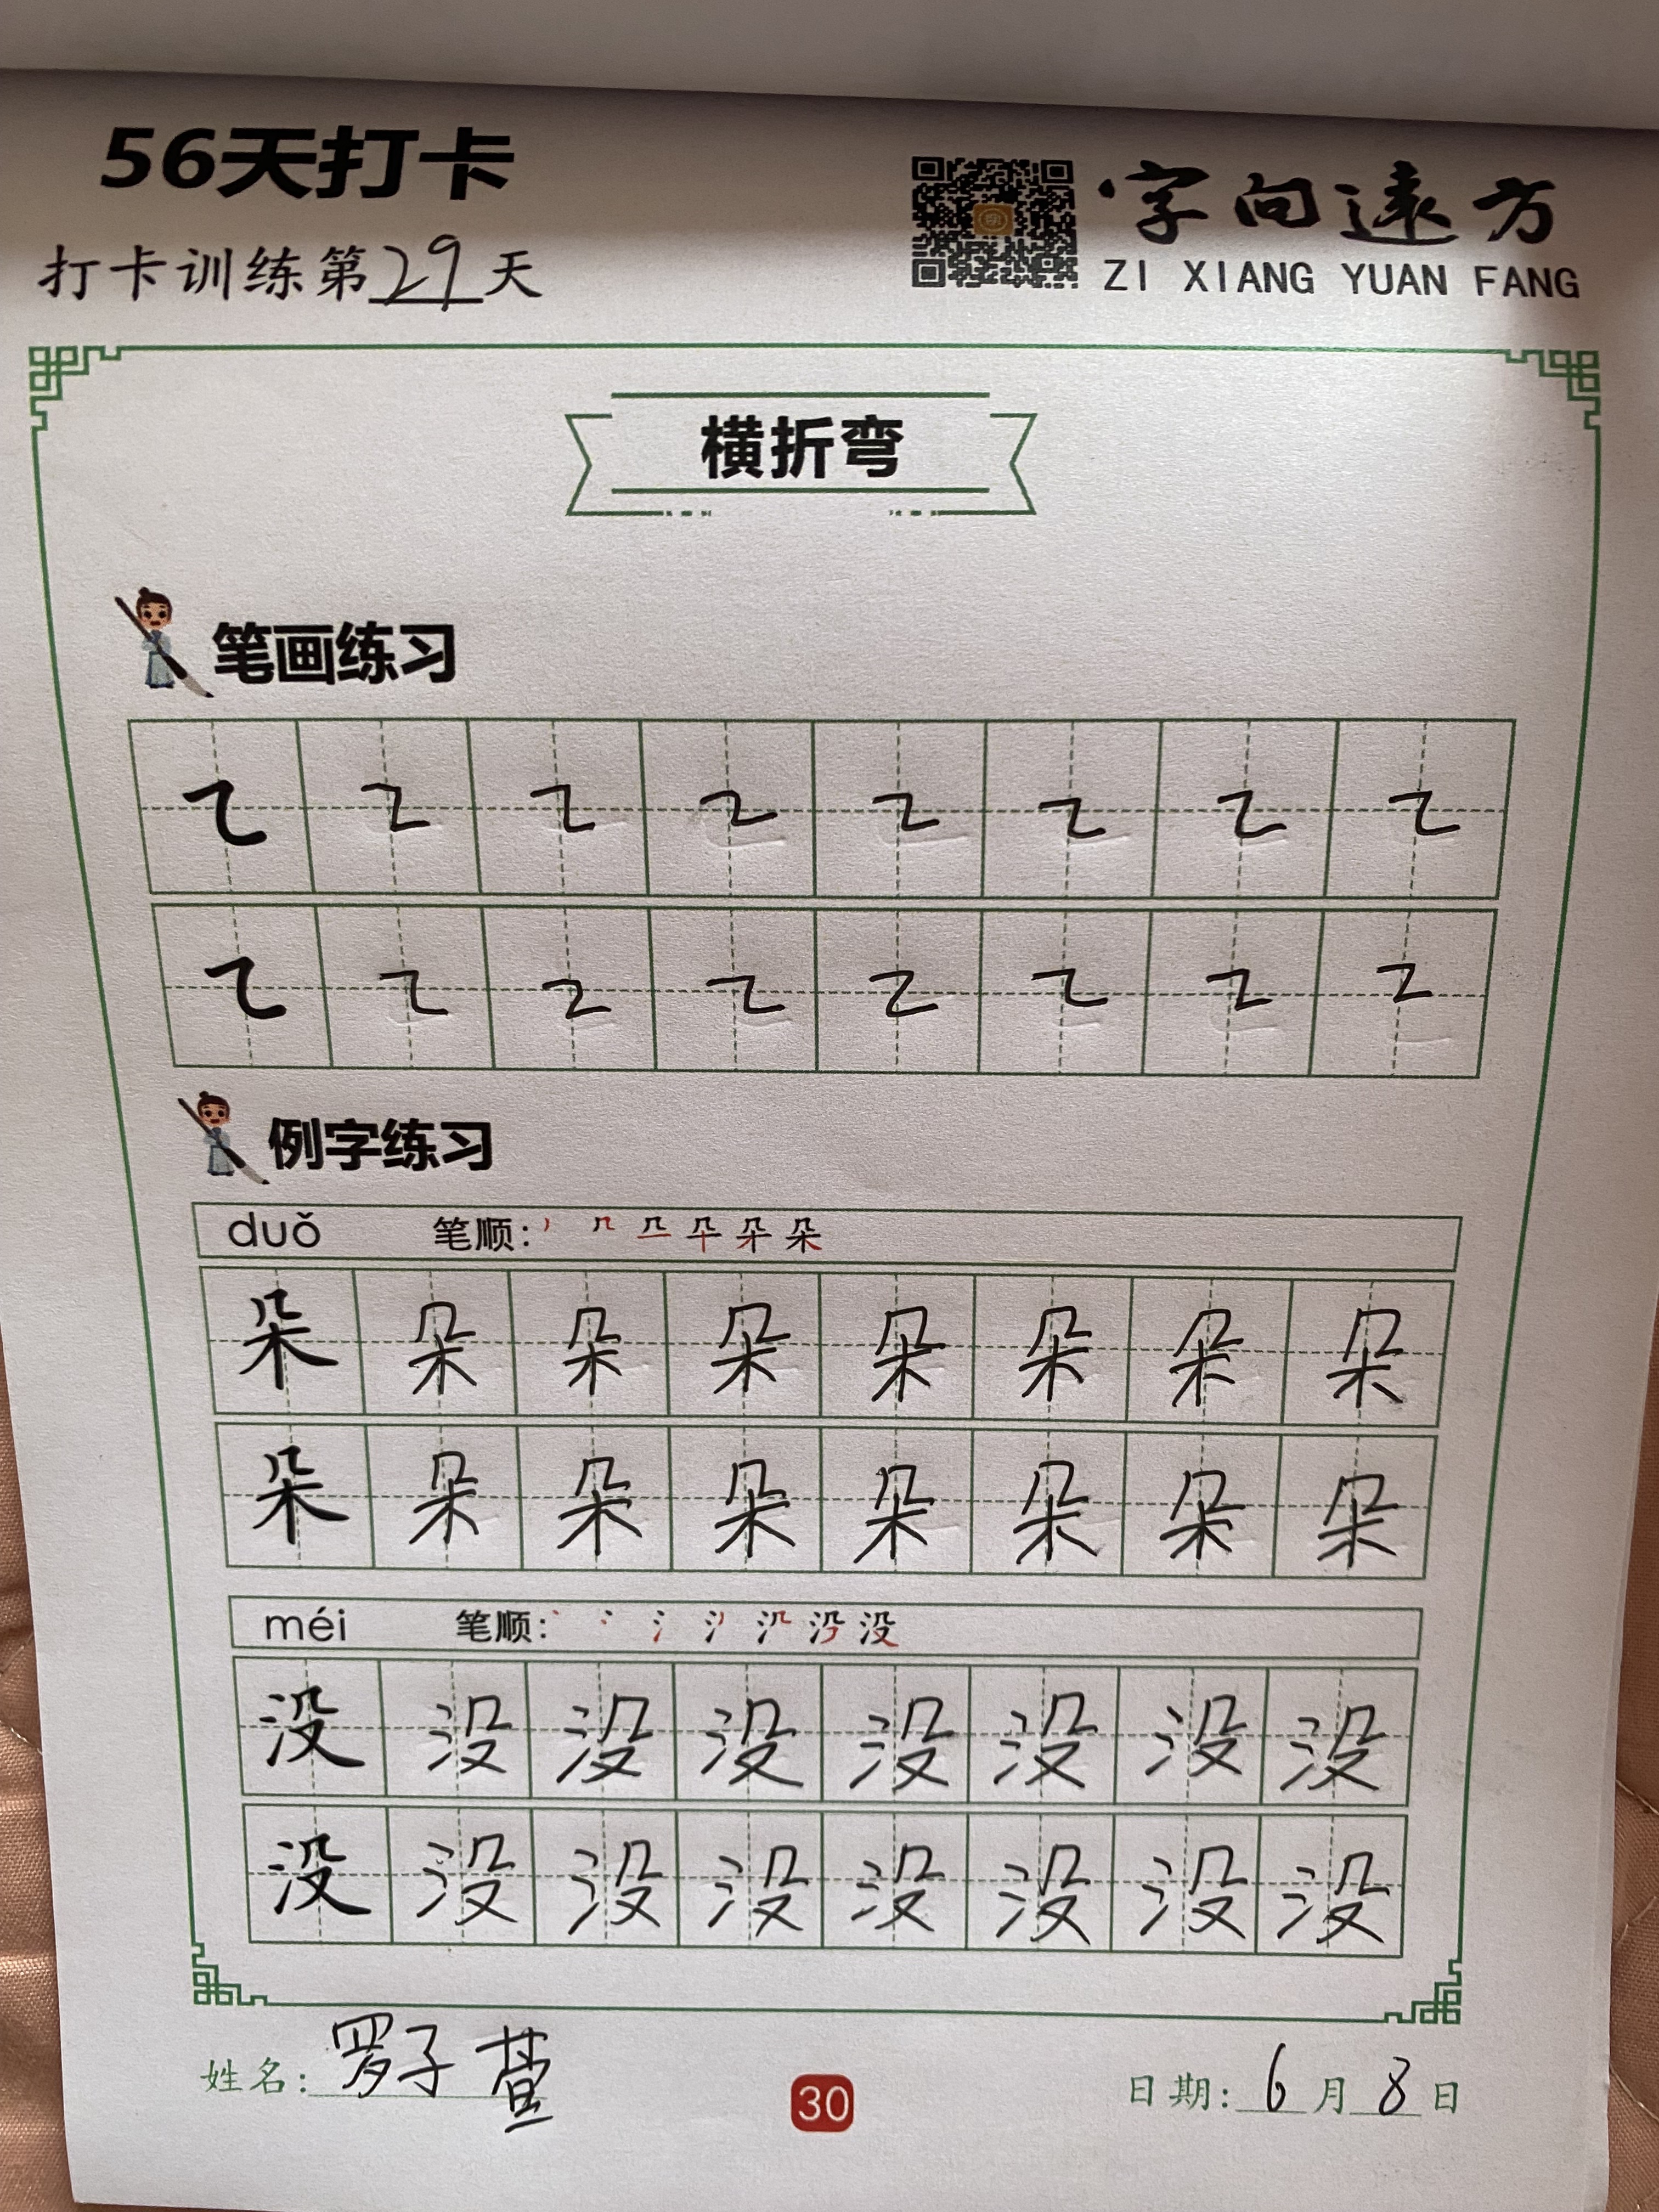 56天打卡
字向遠方
ZI XIANG YUAN FANG
打卡训练第29天
横折弯
笔画练习
例字练习
duǒ 笔顺:
朵 朵 朵 朵 朵 朵 朵 朵
朵 朵 朵 朵 朵 朵 朵 朵
méi 笔顺:
没 没 没 没 没 没 没 没
没 没 没 没 没 没 没 没
姓名: 罗子萱
30
日期: 6月8日